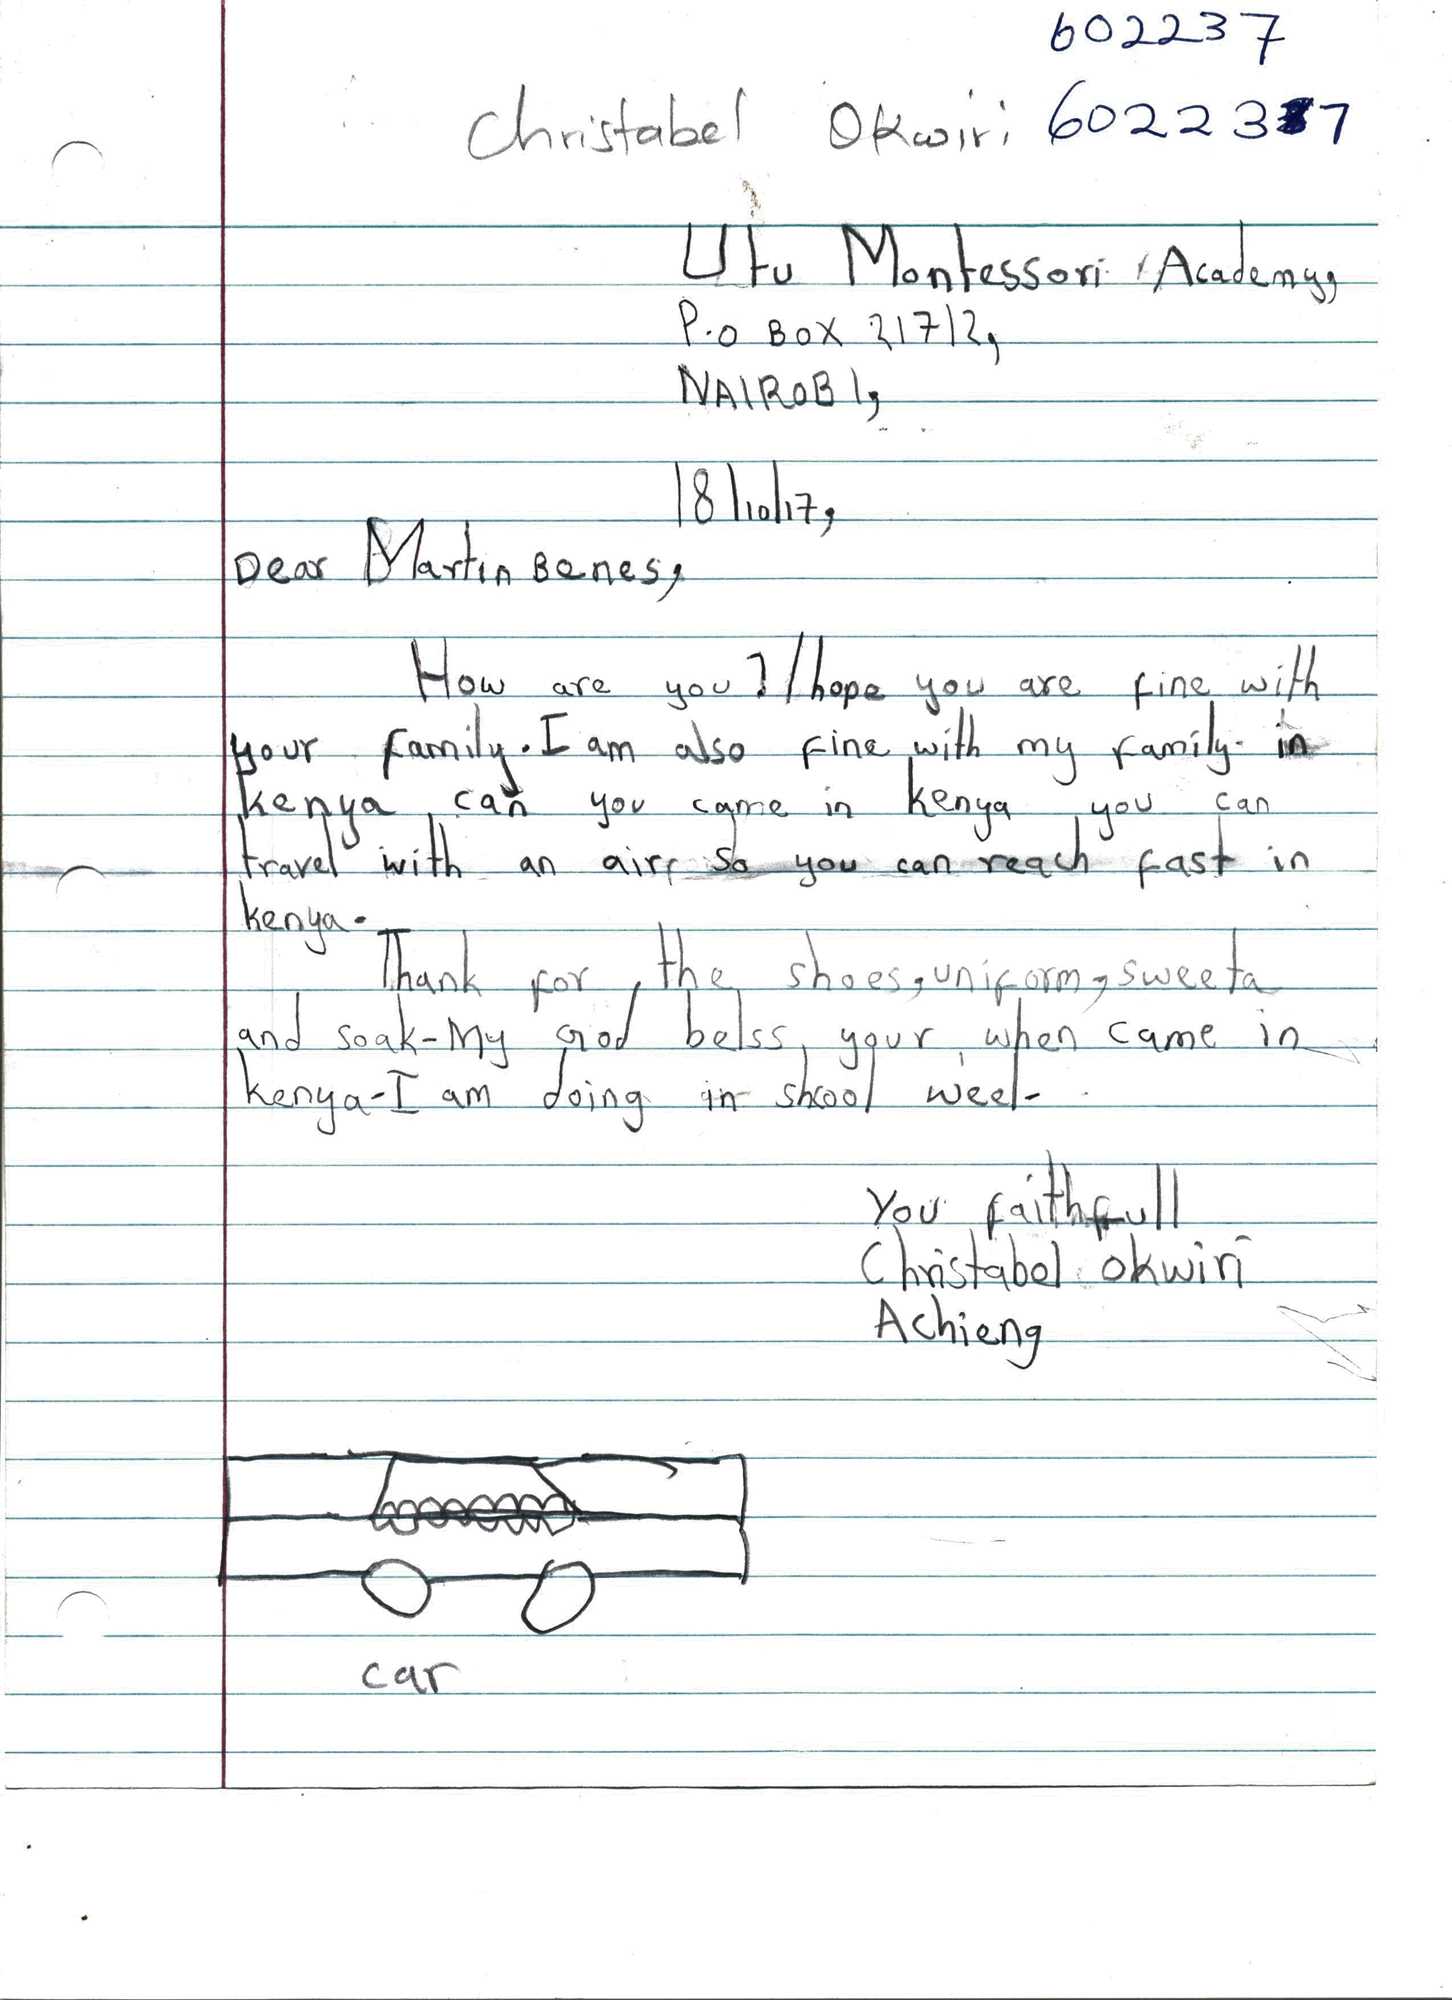 602237
Christabel Okwiri 602237
Utu Montessori Academy,
P.O BOX 21712,
NAIROBI,
18/10/17,
Dear Martin Benes,
How are you? I hope you are fine with
your family. I am also fine with my family. in
kenya can you came in kenya you can
travel with an air, so you can reach fast in
kenya.
Thank for the shoes, uniform, sweeta
and soak-My God belss your when came in
kenya-I am doing in shcool weel-
You faithfull
Christabel okwiri
Achieng
car